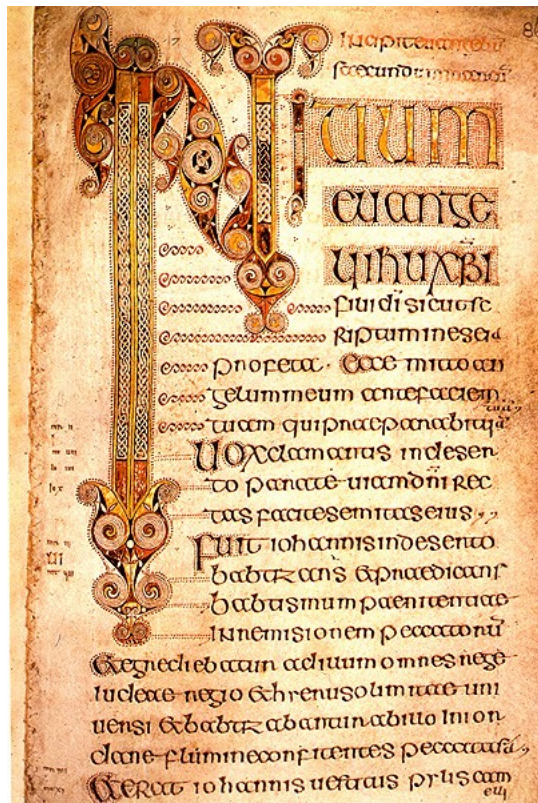 86
Incipit euangelii
secundum marcum
INITIUM
euange
lii ihu xpi
filii dī sicut sc
riptum in eseia
profeta. Ecce mitto an
gelum meum ante faciem
tuam qui praeparabit uiā tuā
Uox clamantis in deser
to parate uiam dn̄i rec
tas facite semitas eius
Fuit iohannis in deserto
babtizans & praedicans
babtismum paenitentiae
in remisionem peccatorū
& egrediebatur ad illum omnes rege
iudeae regio & hierusolimitae uni
uersi & babtizabantur ab illo in ior
dane flumine confitentes peccata sua
& erat iohannis uestitus pylis cam
eli